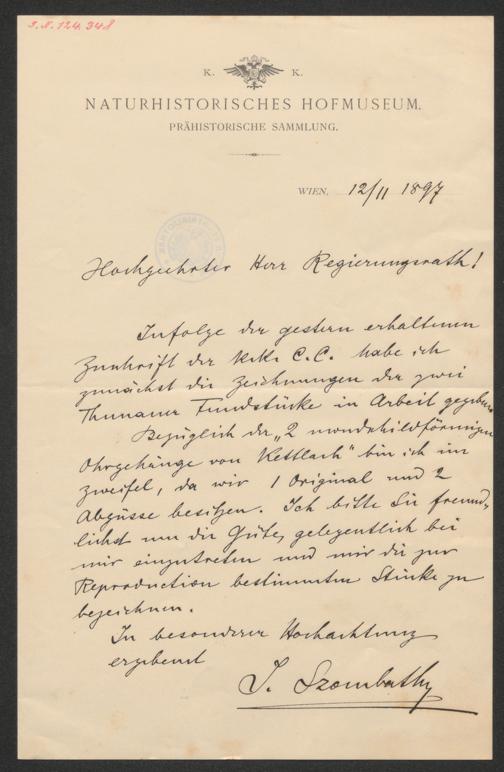 I. N. 124.348
K. K.
NATURHISTORISCHES HOFMUSEUM.
PRÄHISTORISCHE SAMMLUNG.
WIEN, 12/II 1897
Hochgeehrter Herr Regierungsrath!
Infolge der gestern erhaltenen
Zuschrift der k. k. C. C. habe ich
zunächst die Zeichnungen der zwei
Thunauer Fundstücke in Arbeit gegeben.
Bezüglich der „2 mondschildförmigen
Ohrgehänge von Kettlach“ bin ich im
zweifel, da wir 1 Original und 2
Abgüsse besitzen. Ich bitte Sie freund-
lichst um die Güte, gelegentlich bei
mir einzutreten und mir die zur
Reproduction bestimmten Stücke zu
bezeichnen.
In besonderer Hochachtung
ergebenst
J. Szombathy